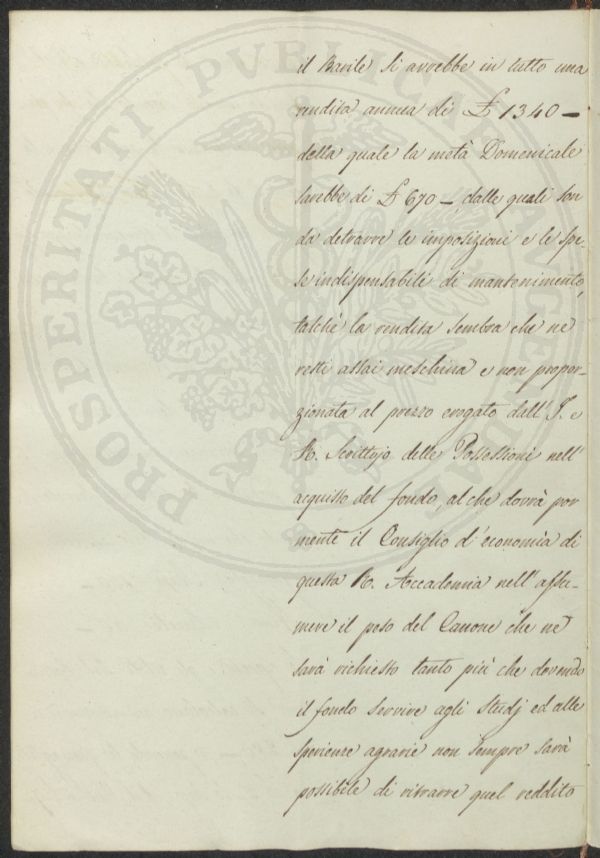 il Barile si avrebbe in tutto una
rendita annua di £ 1340 —
della quale la metà Domenicale
sarebbe di £ 670 —, dalle quali son
da detrarre le imposizioni e le spe-
se indispensabili di mantenimento,
talchè la rendita sembra che ne
resti assai meschina e non propor-
zionata al prezzo erogato dall' I. e
R. Scrittojo delle Possessioni nell'
acquisto del fondo, al che dovrà por
mente il Consiglio d'economia di
questa R. Accademia nell' assu-
mere il peso del Canone che ne
sarà richiesto tanto più che dovendo
il fondo servire agli Studj ed alle
sperienze agrarie non sempre sarà
possibile di ritrarre quel reddito
PROSPERITATI PVBLICAE AVGE